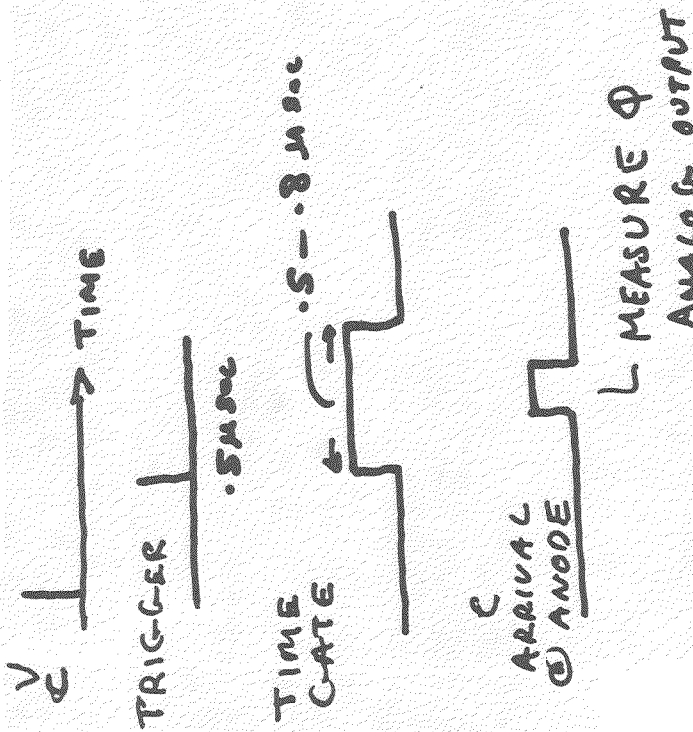 V
TIME
TRIGGER
.5 μsec
TIME
GATE
.5 - .8 μsec
C
ARRIVAL
@ ANODE
MEASURE Φ
ANALOG OUTPUT